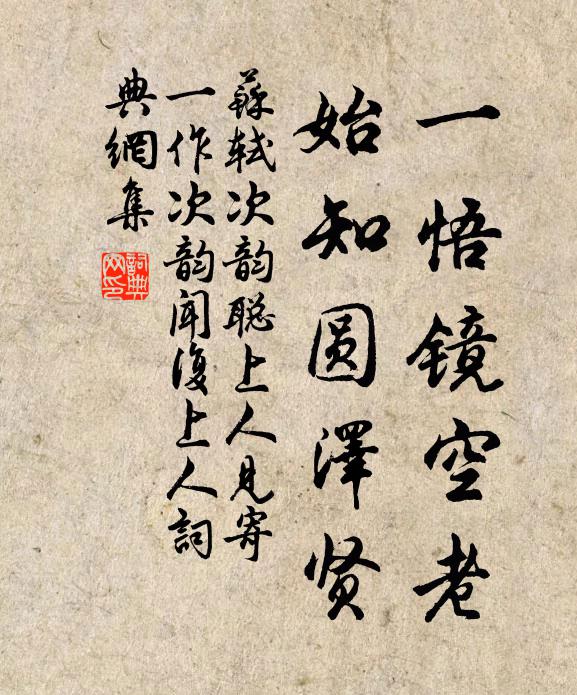 一悟镜空老
始知圆澤贤
蘇軾次韵聪上人见寄
一作次韵闻復上人詞
典網集
詞典
网印